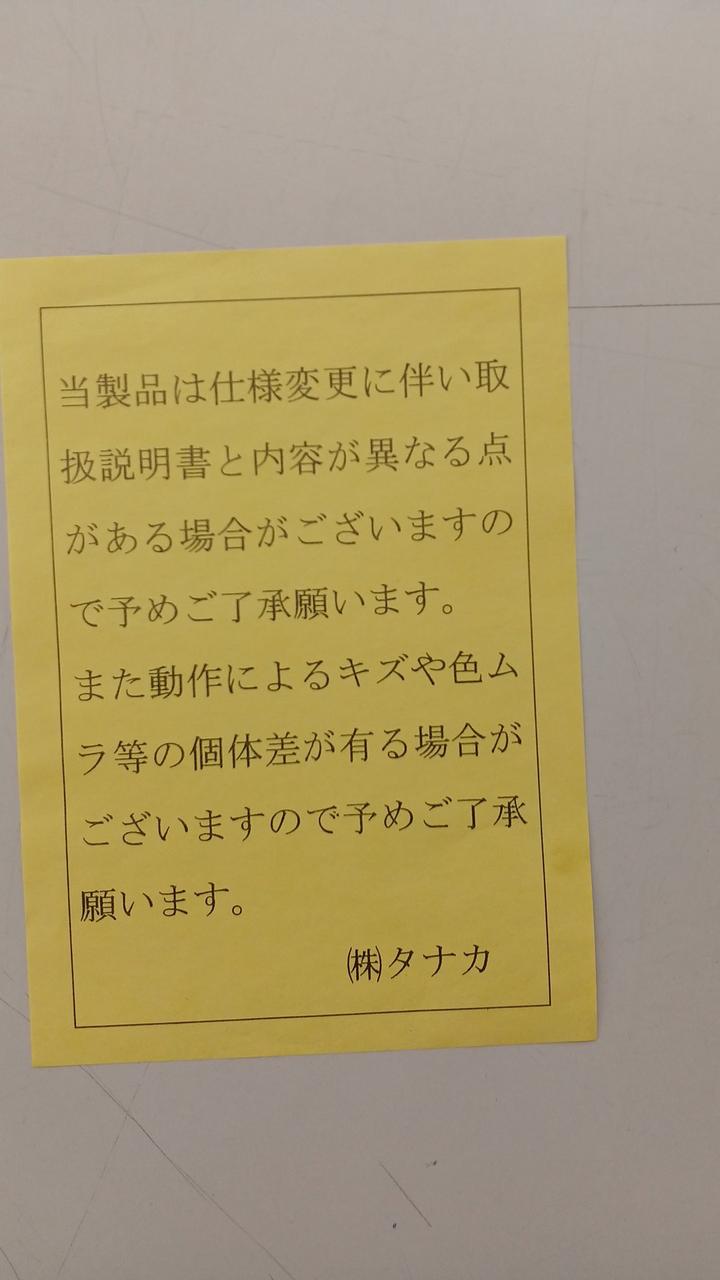 当製品は仕様変更に伴い取
扱説明書と内容が異なる点
がある場合がございますの
で予めご了承願います。
また動作によるキズや色ム
ラ等の個体差が有る場合が
ございますので予めご了承
願います。
㈱タナカ